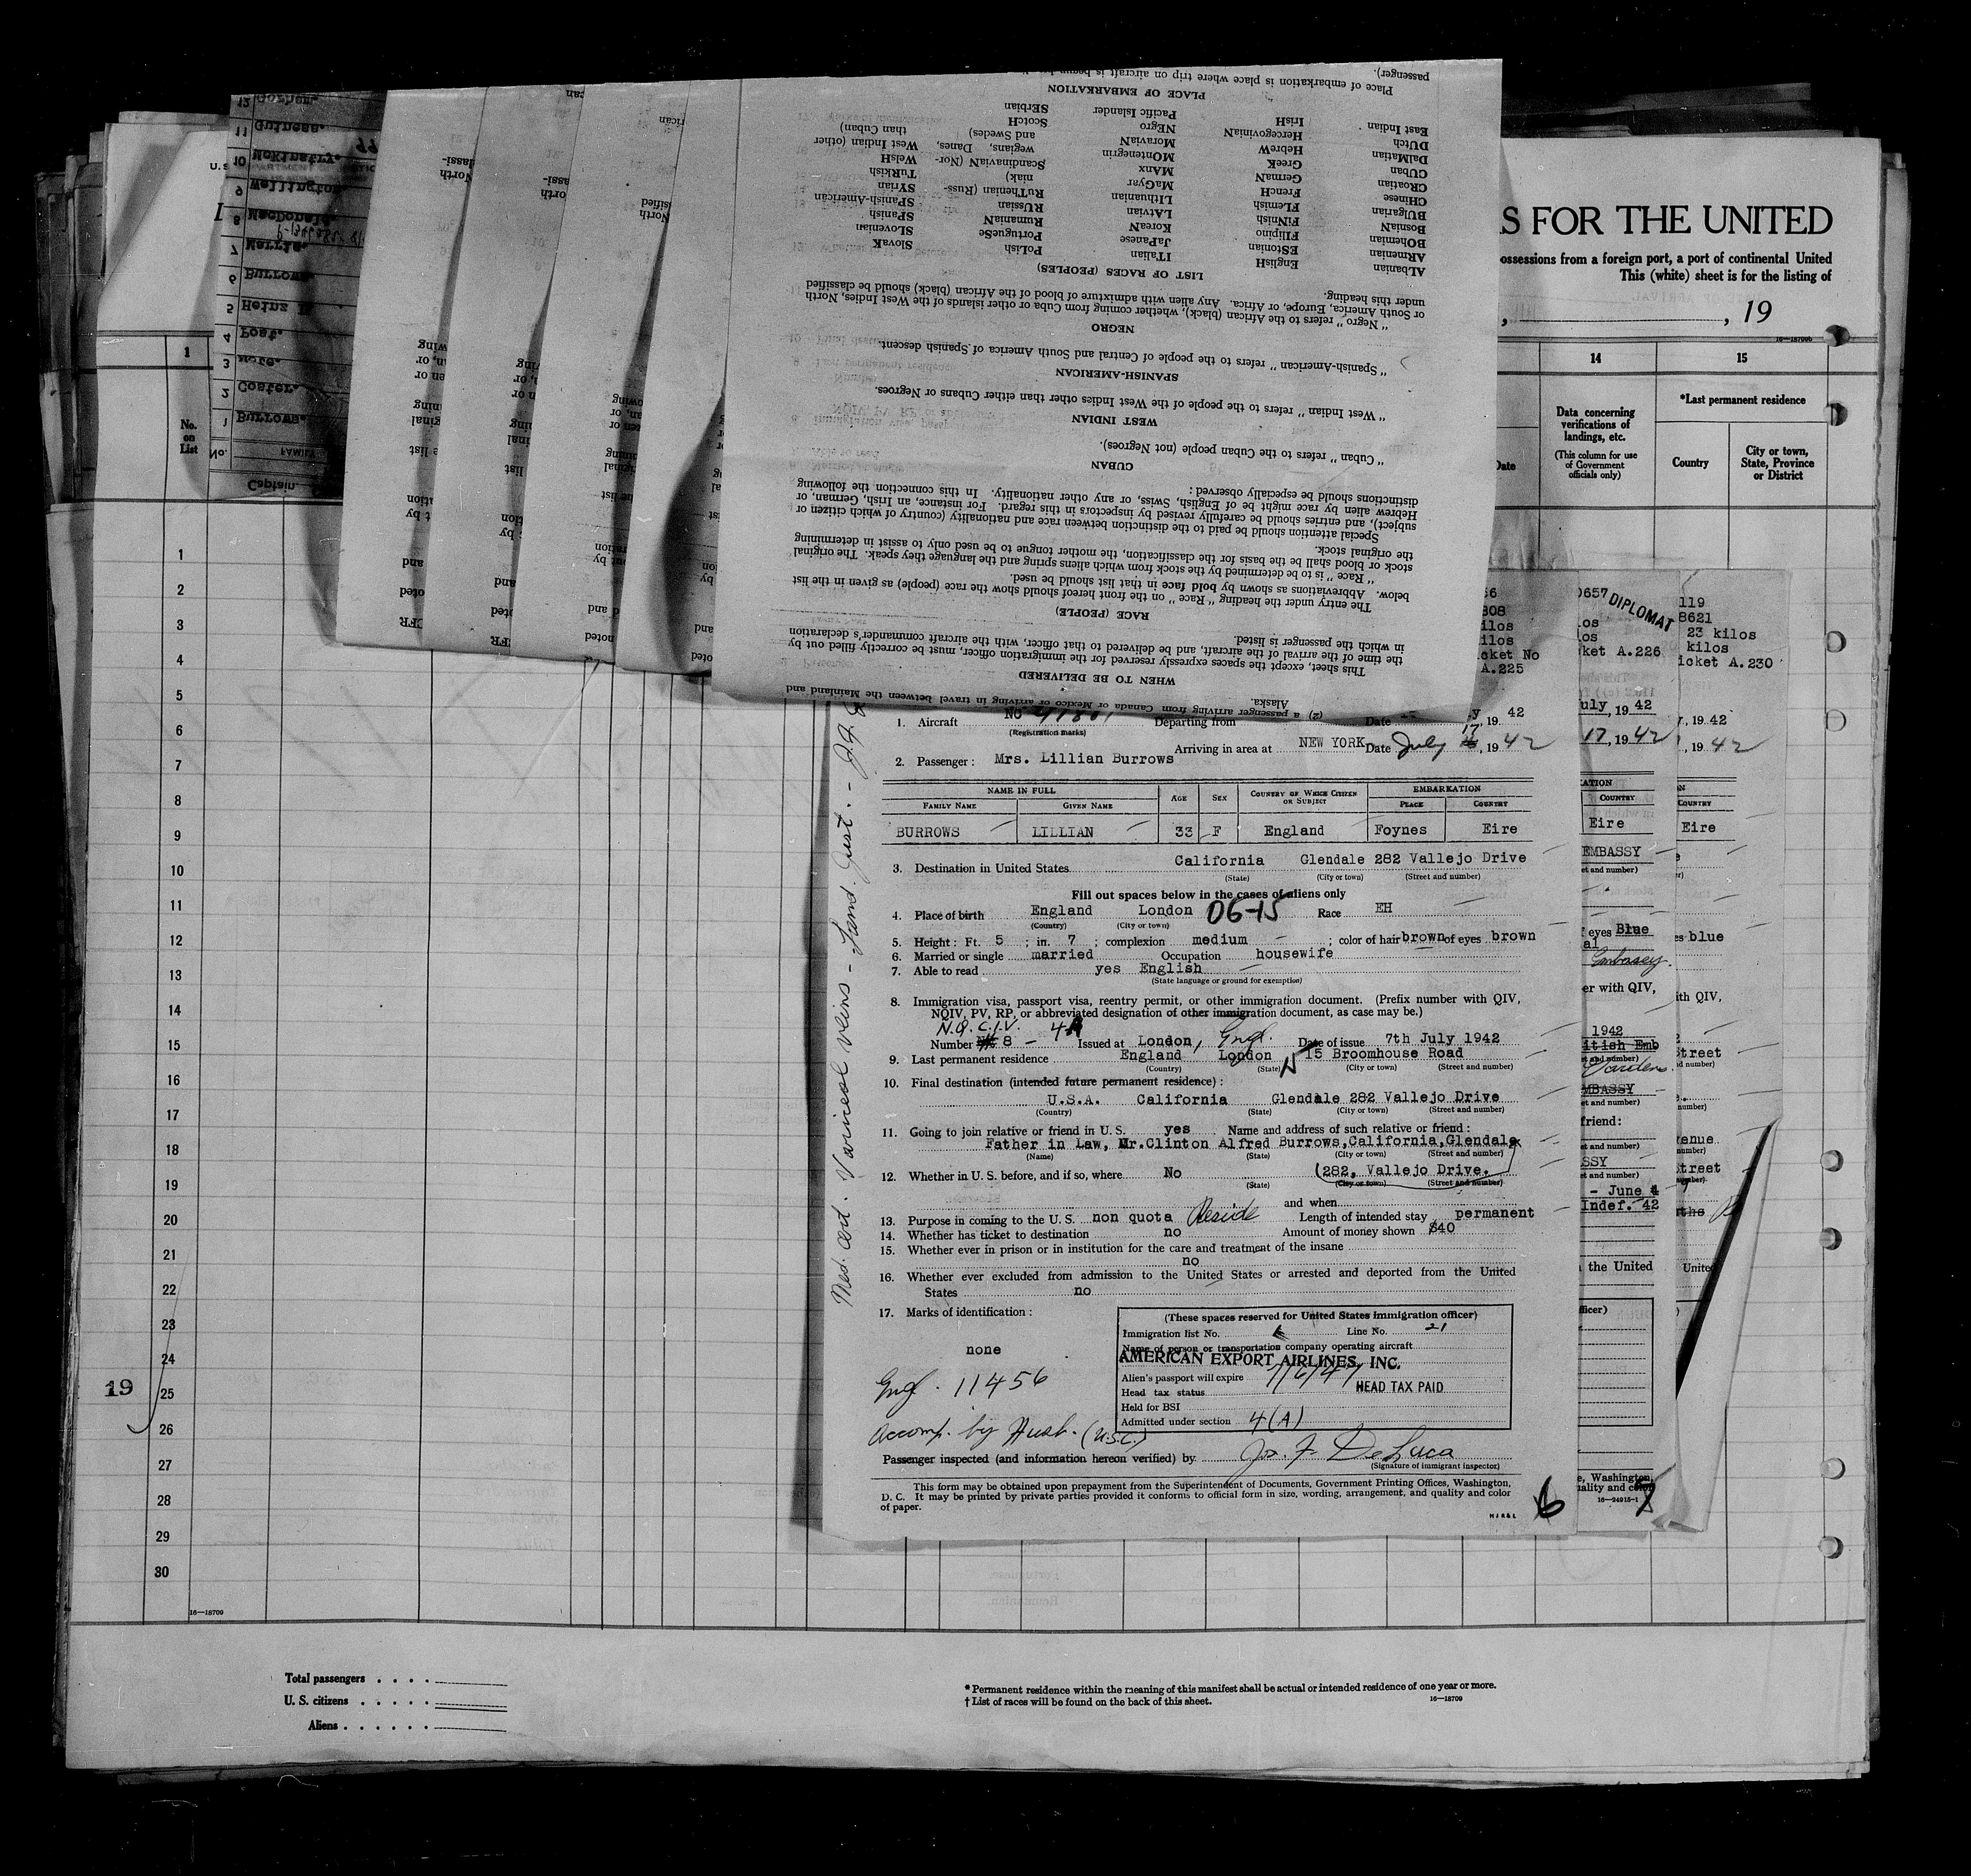 passenger).
Place of embarkation is place where trip on aircraft is
PLACE OF EMBARKATION
East Indian IrisH Pacific Islander SErbian
DUtch HercegovinniaN NEgro ScotcH
DalMatian HebreW MoraviaN Scandinavian (Norwegians, Danes, and Swedes) West Indian (other than Cuban)
CUban GreeK MOntenegrin WelsH
CRoatian GermaN MAnx RuThenian (Russniak) TuRkish
CHinese FrencH MaGyar RUssian SYrian
BUlgarian FLemish LIthuanian RumaniaN SPanish-American
BosniaN FiNnish LAtvian PortugueSe SPanish
BOhemian FIlipino KoreaN PoLish SLovenian
ARmenian EStonian JaPanese SlovaK
ALbanian EngliSH ITalian
LIST OF RACES (PEOPLES)
under this heading.
or South America, Europe, or Africa. Any alien with admixture of blood of the African (black) should be classified
"Negro" refers to the African (black), whether coming from Cuba or other islands of the West Indies, North
NEGRO
"Spanish-American" refers to the people of Central and South America of Spanish descent.
SPANISH-AMERICAN
"West Indian" refers to the people of the West Indies other than either Cubans or Negroes.
WEST INDIAN
"Cuban" refers to the Cuban people (not Negroes).
CUBAN
distinctions should be especially observed:
Hebrew alien by race might be of English, Swiss, or any other nationality. In this connection the following
subject), and entries should be carefully revised by inspectors in this regard. For instance, an Irish, German, or
Special attention should be paid to the distinction between race and nationality (country of which citizen or
the original stock.
stock or blood shall be the basis for the classification, the mother tongue to be used only to assist in determining
"Race" is to be determined by the stock from which aliens spring and the language they speak. The original
below. Abbreviations as shown by bold face in that list should be used.
The entry under the heading "Race" on the front hereof should show the race (people) as given in the list
RACE (PEOPLE)
in which the passenger is listed.
the time of the arrival of the aircraft, and be delivered to that officer, with the aircraft commander's declaration
This sheet, except the spaces expressly reserved for the immigration officer, must be correctly filled out by
WHEN TO BE DELIVERED
Alaska.
(2) a passenger arriving from Canada or Mexico or arriving in travel between the Mainland and
12
11 Guiness.
10 McKinstry.
9 Wellington.
8 MacDonald.
7 Morris.
6 Burrows.
5 Heinz
4 Post.
3
2 Coster.
1 Burrows.
No. FAMILY
Captain.
S FOR THE UNITED
ossessions from a foreign port, a port of continental United
This (white) sheet is for the listing of
, 19
16—18709b
1
14 15
No. on List
Date
Data concerning verifications of landings, etc.
(This column for use of Government officials only)
*Last permanent residence
Country
City or town, State, Province or District
1
2
3
4
5
6
7
8
9
10
11
12
13
14
15
16
17
18
19
20
21
22
23
24
25
26
27
28
29
30
19
16—18709
1. Aircraft No 41881 Departing from Date , 19 42
(Registration marks)
Arriving in area at NEW YORK Date July 17, 1942
2. Passenger: Mrs. Lillian Burrows
NAME IN FULL AGE SEX COUNTRY OF WHICH CITIZEN OR SUBJECT EMBARKATION
FAMILY NAME GIVEN NAME PLACE COUNTRY
BURROWS LILLIAN 33 F England Foynes Eire
3. Destination in United States California Glendale 282 Vallejo Drive
(State) (City or town) (Street and number)
Fill out spaces below in the cases of aliens only
4. Place of birth England London 06-15 Race EH
(Country) (City or town)
5. Height: Ft. 5 ; in. 7 ; complexion medium ; color of hair brown of eyes brown
6. Married or single married Occupation housewife
7. Able to read yes English
(State language or ground for exemption)
8. Immigration visa, passport visa, reentry permit, or other immigration document. (Prefix number with QIV,
NQIV, PV, RP, or abbreviated designation of other immigration document, as case may be.)
N.Q.C.I.V. 4A
Number 8 - Issued at London, Engl. Date of issue 7th July 1942
9. Last permanent residence England London 15 Broomhouse Road
(Country) (State) (City or town) (Street and number)
10. Final destination (intended future permanent residence):
U.S.A. California Glendale 282 Vallejo Drive
(Country) (State) (City or town) (Street and number)
11. Going to join relative or friend in U.S. yes Name and address of such relative or friend:
Father in Law, Mr.Clinton Alfred Burrows,California,Glendale
(Name) (State) (City or town) (Street and number)
12. Whether in U.S. before, and if so, where No (282, Vallejo Drive.
(State) (City or town) (Street and number)
and when
13. Purpose in coming to the U. S. non quota Reside Length of intended stay permanent
14. Whether has ticket to destination no Amount of money shown $40
15. Whether ever in prison or in institution for the care and treatment of the insane
no
16. Whether ever excluded from admission to the United States or arrested and deported from the United
States no
17. Marks of identification:
none
(These spaces reserved for United States immigration officer)
Immigration list No. Line No. 21
Name of person or transportation company operating aircraft
AMERICAN EXPORT AIRLINES, INC.
Alien's passport will expire 7/6/47
Head tax status HEAD TAX PAID
Held for BSI
Admitted under section 4(A)
Engl. 11456
Accomp. by Husb. (U.S.C.)
Passenger inspected (and information hereon verified) by Jos. F. DeLuca
(Signature of immigrant inspector)
This form may be obtained upon prepayment from the Superintendent of Documents, Government Printing Offices, Washington,
D. C. It may be printed by private parties provided it conforms to official form in size, wording, arrangement, and quality and color
of paper.
6
Med. cert. Varicose veins -
0657 DIPLOMAT
119
8621
23 kilos
kilos
ket A.226
icket A.230
cket No
A.225
July, 19 42
17, 1942
, 19 42
, 1942
COUNTRY
Eire
EMBASSY
eyes Blue
es blue
Embassy.
er with QIV,
ith QIV,
1942
itish Emb
treet
Gardens
MBASSY
friend:
venue
SSY
treet
- June 4
Indef. 42
the United
United
ficer)
e, Washington,
uality and color
16—24915-1
Total passengers . . . .
U. S. citizens . . . . .
Aliens . . . . . .
* Permanent residence within the meaning of this manifest shall be actual or intended residence of one year or more.
† List of races will be found on the back of this sheet.
16—18709